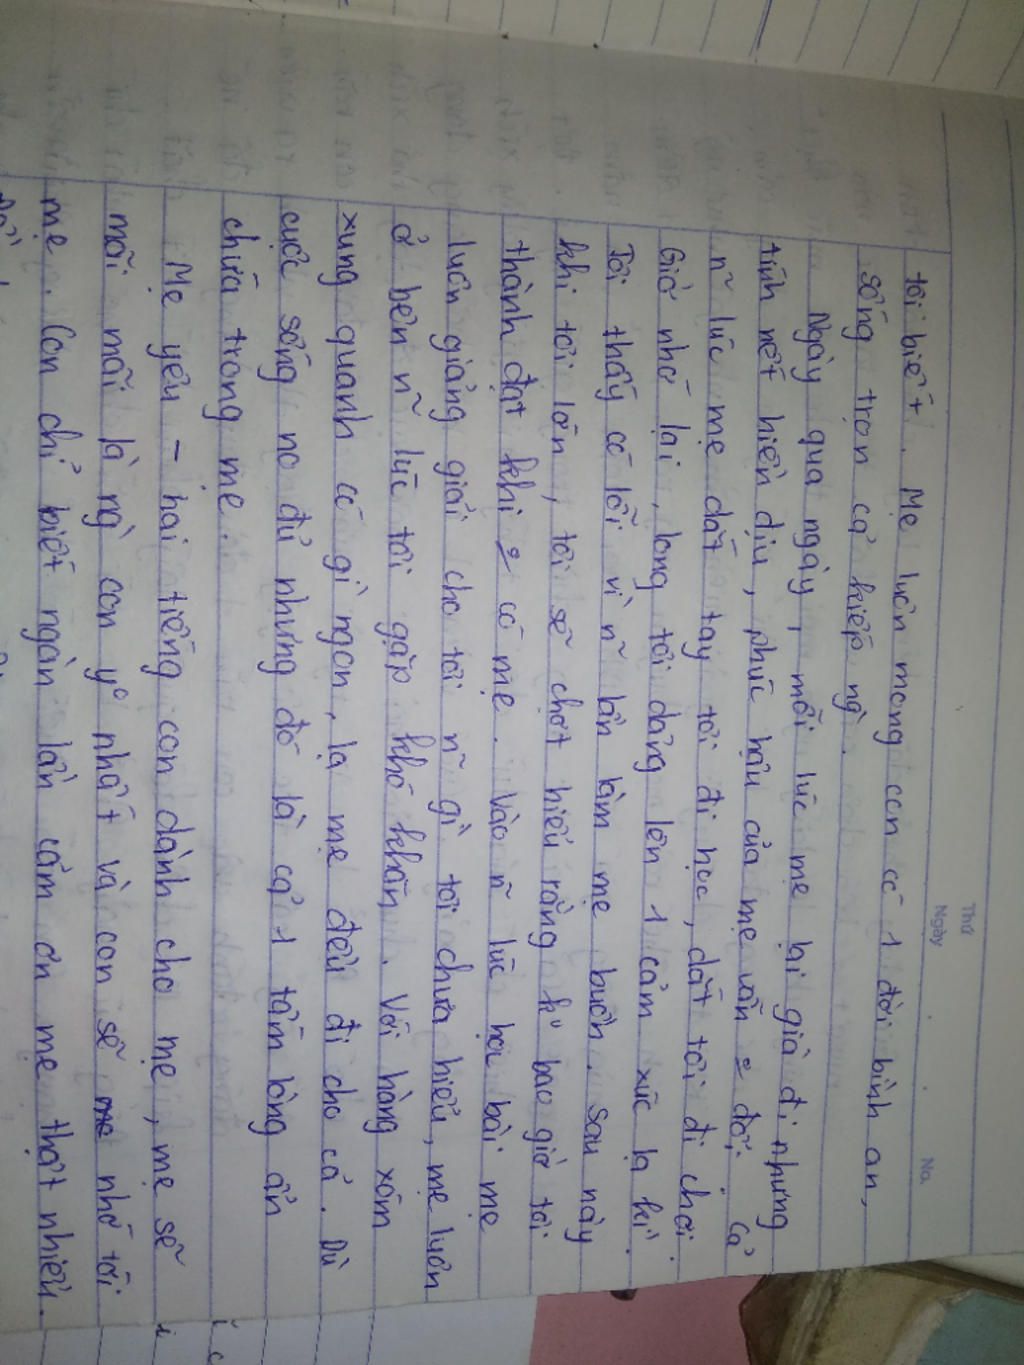 Thứ
Ngày
No.
tôi biết. Mẹ luôn mong con có 1 đời bình an,
sống trọn cả kiếp ng`.
Ngày qua ngày, mỗi lúc mẹ lại già đi nhưng
tính nết hiền dịu, phúc hậu của mẹ vẫn đổi. Cả
n~ lúc mẹ dắt tay tôi đi học, dắt tôi đi chơi.
Giờ nhớ lại, long tôi dâng lên 1 cảm xúc lạ kì.
Tôi thấy có lỗi vì n~ lần làm mẹ buồn. Sau này
khi tôi lớn, tôi sẽ chợt hiểu rằng k° bao giờ tôi
thành đạt khi có mẹ. Vào n~ lúc học bài mẹ
luôn giảng giải cho tôi n~ gì tôi chưa hiểu, mẹ luôn
ở bên n~ lúc tôi gặp khó khăn. Với hàng xóm
xung quanh có gì ngon, lạ mẹ đều đi cho cả. Dù
cuộc sống no đủ nhưng đó là cả 1 tấm lòng ẩn
chứa trong mẹ.
Mẹ yêu - hai tiếng con dành cho mẹ, mẹ sẽ
mãi mãi là ng` con y° nhất và con sẽ nhớ tới
mẹ. Con chỉ biết ngàn lần cảm ơn mẹ thật nhiều.